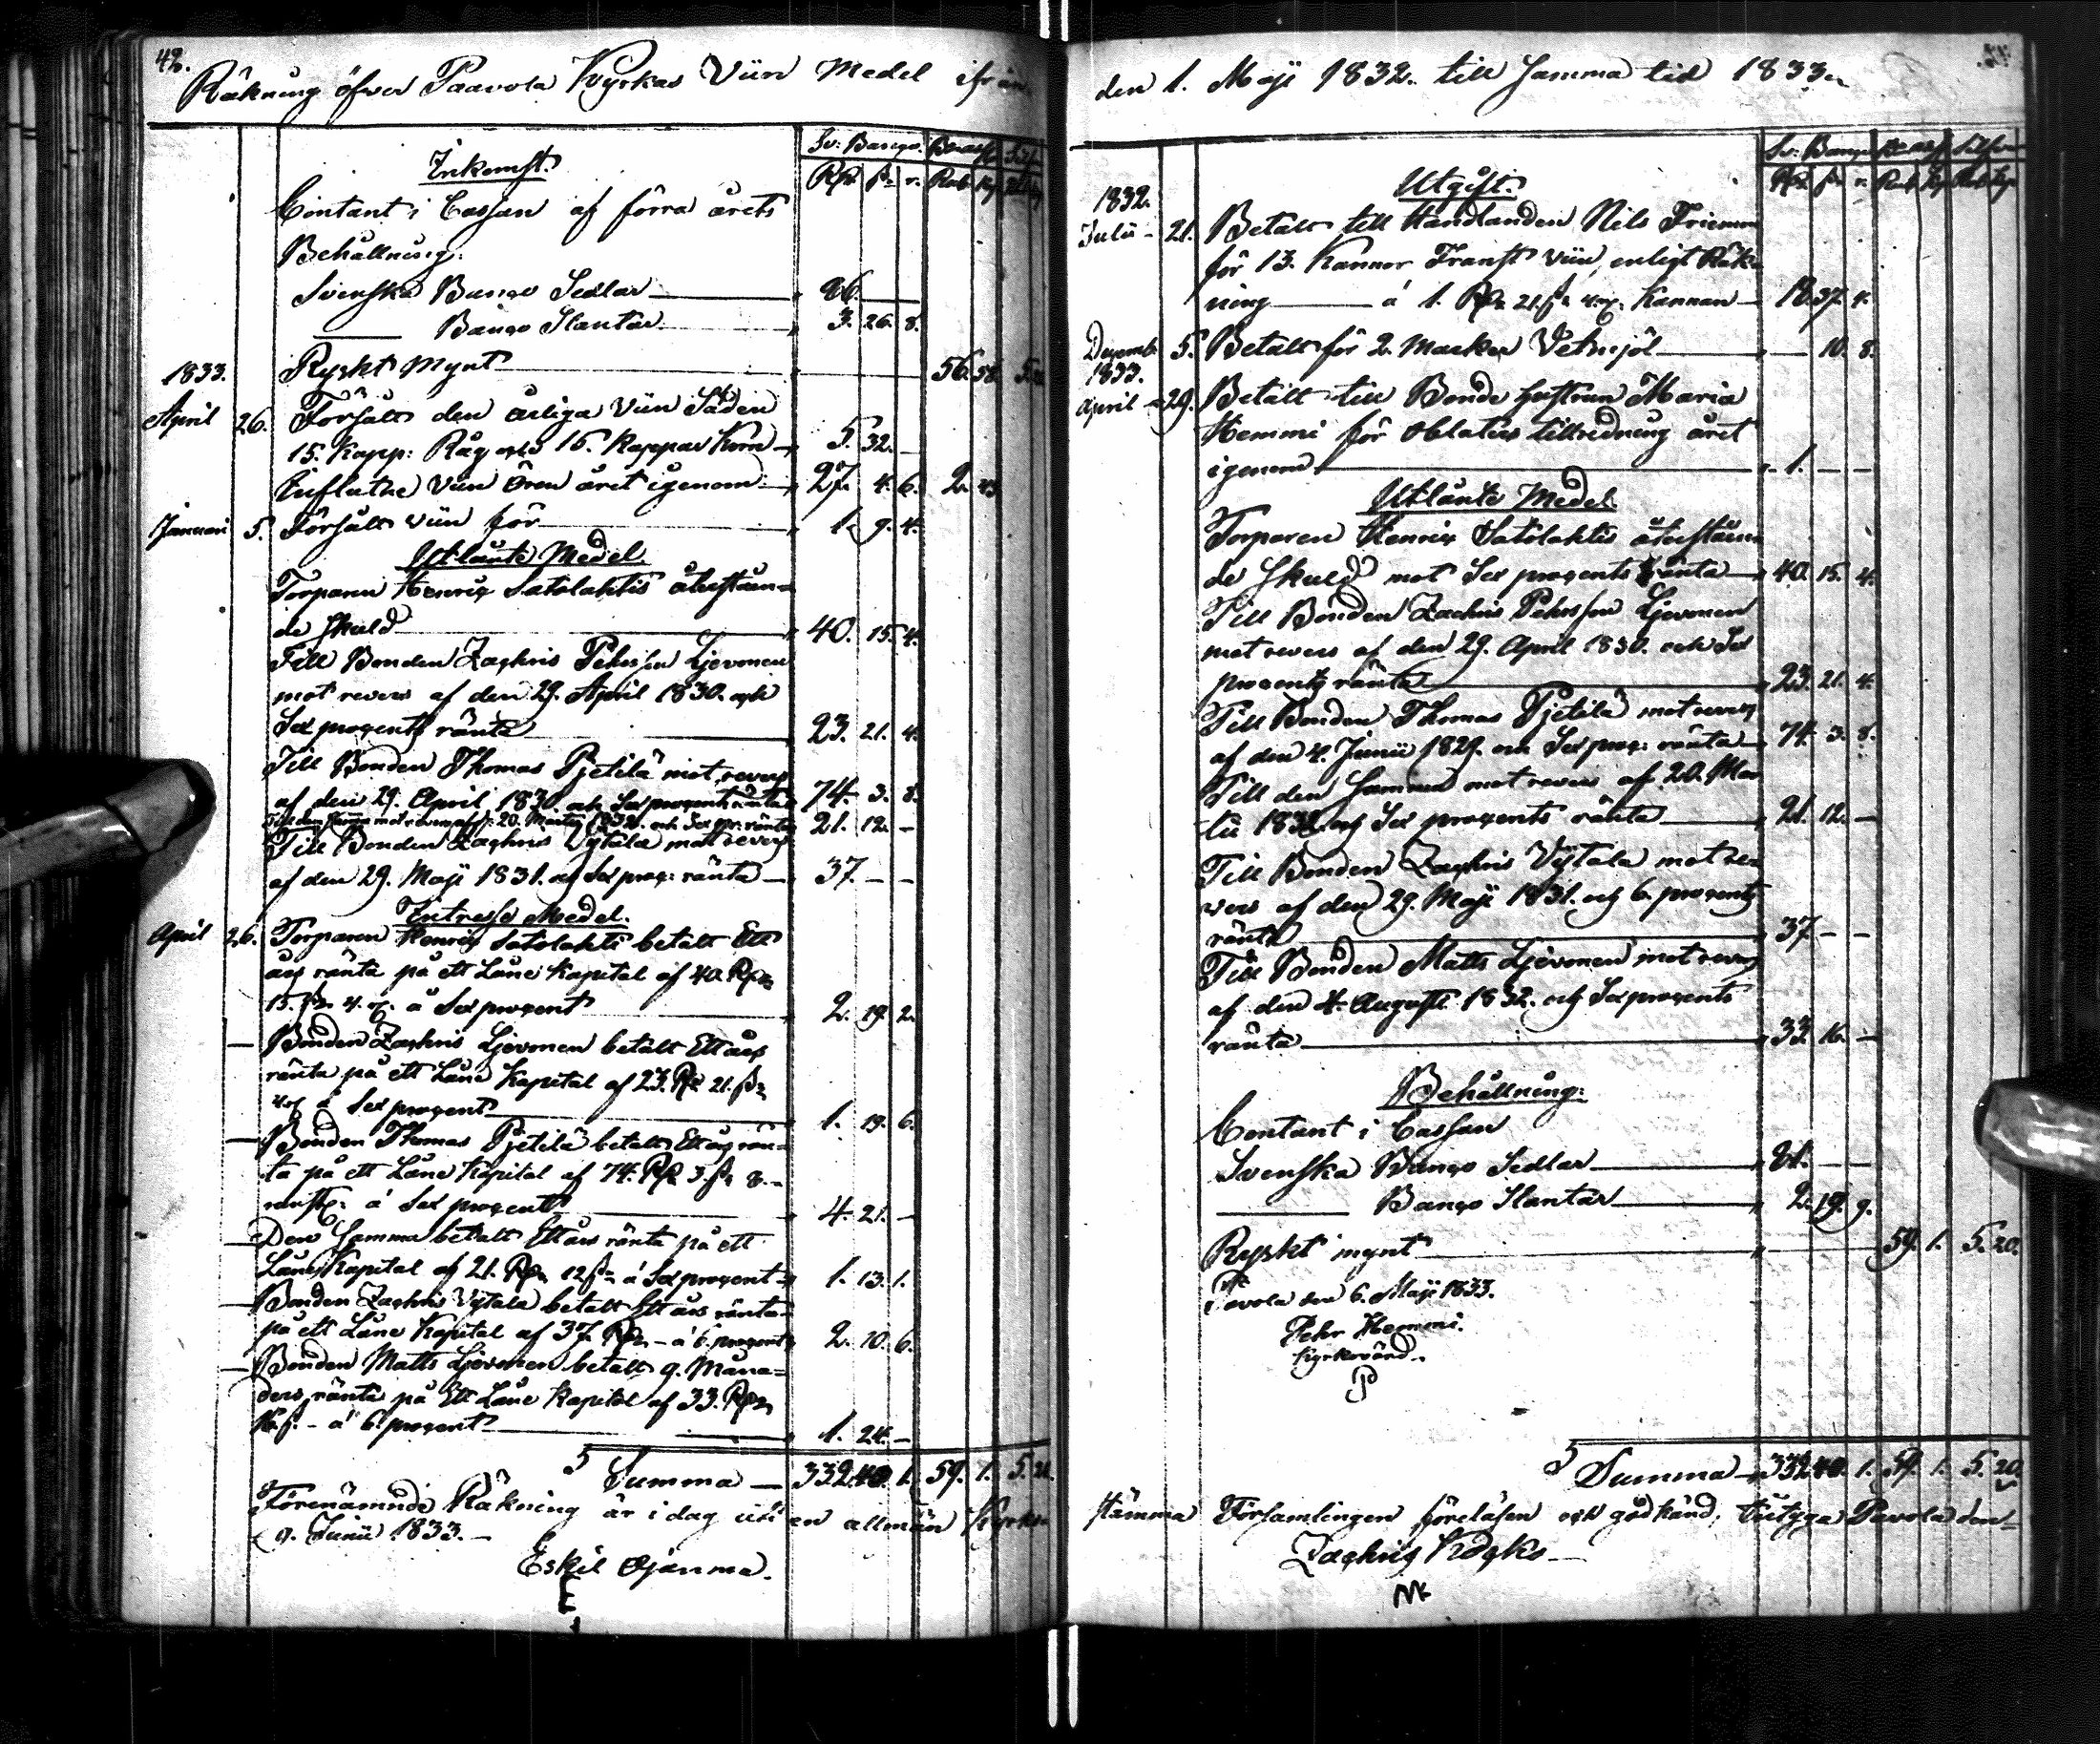 42.
Räkning öfver Paavola Kyrkas Viin Medel ifrån
Sv: Banco. Banco Ass: Silfver
Rdr ß. r. Rub. Kop
Inkomst.
Contant i Cassan af förra årets
Behållning:
Svenska Banco Sedlar 86.
Banco Slantar 3. 26. 8.
1833. Ryskt Mynt 56. 58. 5. 20.
April 26. Försålt den årliga Viin Säden
15. Kapp: Råg och 15. Kappar Korn 5. 32. -
Influtne Viin Ören året igenom 27. 4. 6. 2. 43.
Januari 5. Försålt viin för 1. 9. 4.
Utlånte Medel.
Torparen Henric Satolahtis återstån-
de Skuld 40. 15. 4.
Till Bonden Zachris Pehrsson Ljevonen
mot revers af den 29. April 1830. och
Sex procents ränta 23. 21. 4.
Till Bonden Thomas Pjetilä mot revers
af den 29. April 1830. och Sex procents ränta 74. 3. 8.
Till den samma mot revers af d: 20. Martii 1832. och Sex pr: ränta 21. 12. -
Till Bonden Zachris Vÿtala mot revers
af den 29. Maji 1831. och Sex proc: ränta 37. - -
Intresse Medel.
April 26. Torparen Henric Satolahti betalt Ett
års ränta på ett Låne Kapital af 40. Rdr
15. ß. 4. r. á Sex procent 2. 19. 2.
- Bonden Zachris Ljevonen betalt Ett års
ränta på ett Låne Kapital af 23. Rdr 21. ß.
4. r. á Sex procent 1. 19. 6.
- Bonden Thomas Pjetilä betalt Ett års rän-
ta på ett Låne Kapital af 74. Rdr 3. ß. 8.
á Sex procent 4. 21. -
- Den Samma betalt Ett års ränta på ett
Låne Kapital af 21. Rdr 12 ß. á Sex procent 1. 13. 1.
- Bonden Zachris Vÿtala betalt Ett års ränta
på ett Låne Kapital af 37. Rdr - á 6. procent 2. 10. 6.
- Bonden Matts Ljevonen betalt 9. Måna-
ders ränta på Ett Låne Kapital af 33. Rdr
16. ß. - á 6. procent 1. 24. -
Summa 332. 40. 1. 59. 1. 5. 20.
Förenämnde Räkning är i dag uti en allmän Kyrko-
9. Junii 1833.
Eskil Ojanma.
den 1. Maji 1832. till samma tid 1833.
Sv: Banco Banco Ass: Silfver
Rdr ß. r. Rub. Kop. Rub. Kop.
Utgift.
1832.
Julii 21. Betalt till Handlanden Nils Frieman
för 13. Kannor Franst Viin, enligt Räk-
ning á 1. Rdr 21. ß. 4. r. Kannan 18. 37. 4.
Decemb. 5. Betalt för 2. Marker Vetmjöl - 10. 8.
1833.
April 29. Betalt till Bonde hustrun Maria
Hemmi för Oblaters tillredning året
igenom 1. - -
Utlånte Medel.
Torparen Henric Satolahtis återstån-
de Skuld mot Sex procents ränta 40. 15. 4.
Till Bonden Zachris Pehrsson Ljevonen
mot revers af den 29. April 1830. och Sex
procents ränta 23. 21. 4.
Till Bonden Thomas Pjetilä mot revers
af den 4. Junii 1829. och Sex proc: ränta 74. 3. 8.
Till den Samma mot revers af 20. Mar-
tii 1832. och Sex procents ränta 21. 12. -
Till Bonden Zachris Vÿtala mot re-
vers af den 29. Maji 1831. och 6. procents
ränta 37. - -
Till Bonden Matts Ljevonen mot revers
af den 4. Augusti 1832. och Sex procents
ränta 33. 16. -
Behållning:
Contant i Cassan
Svenska Banco Sedlar 81. - -
Banco Slantar 2. 19. 9.
Ryskt mynt 59. 1. 5. 20.
Pavola den 6. Maji 1833.
Pehr Hemmi.
Kyrkovärd.
P
Summa 332. 40. 1. 59. 1. 5. 20.
stämma Församlingen föreläsen och godkänd, betyga Pavola den
Zachris